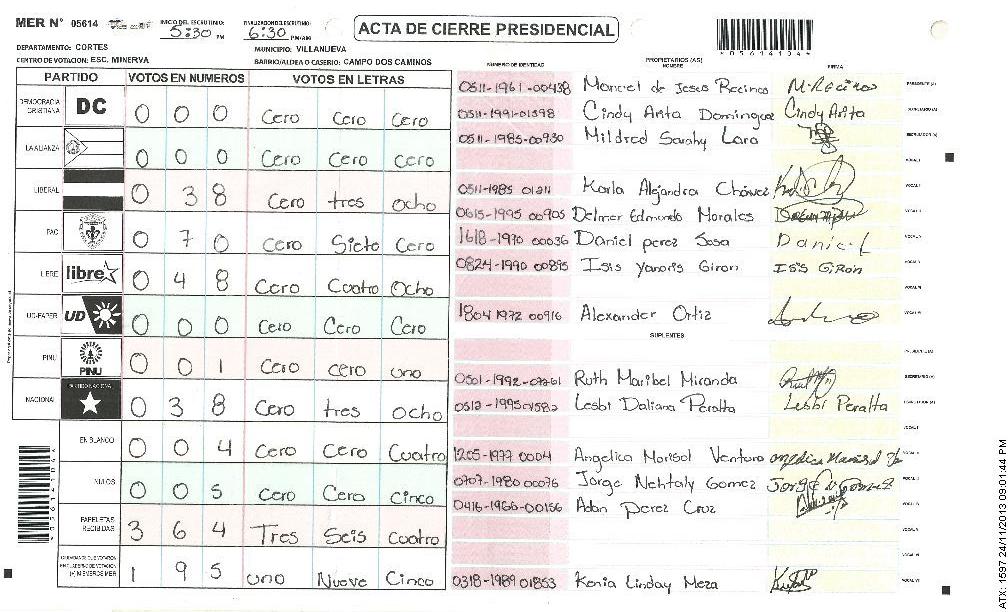 MER N° 05614
INICIO DEL ESCRUTINIO: 5:30 PM
FINALIZACION DEL ESCRUTINIO: 6:30 P.M/AM
ACTA DE CIERRE PRESIDENCIAL
*05614104*
DEPARTAMENTO: CORTES
MUNICIPIO: VILLANUEVA
CENTRO DE VOTACION: ESC. MINERVA
BARRIO/ALDEA O CASERIO: CAMPO DOS CAMINOS
PARTIDO VOTOS EN NUMEROS VOTOS EN LETRAS
DEMOCRACIA CRISTIANA DC 0 0 0 Cero Cero Cero
LA ALIANZA 0 0 0 Cero Cero Cero
LIBERAL 0 3 8 Cero tres ocho
PAC 0 7 0 Cero Siete Cero
LIBRE libre 0 4 8 Cero Cuatro Ocho
UD-FAPER UD 0 0 0 Cero Cero Cero
PINU PINU 0 0 1 Cero cero uno
NACIONAL PARTIDO NACIONAL 0 3 8 Cero tres ocho
EN BLANCO 0 0 4 Cero Cero Cuatro
NULOS 0 0 5 Cero Cero Cinco
PAPELETAS RECIBIDAS 3 6 4 Tres Seis Cuatro
CIUDADANOS QUE VOTARON EN CUADERNO DE VOTACION (+) MIEMBROS MER 1 9 5 uno Nueve Cinco
NÚMERO DE IDENTIDAD PROPIETARIOS (AS) NOMBRE FIRMA
0511-1961-00438 Manuel de Jesus Recinos M. Recinos PRESIDENTE (A)
0511-1991-01398 Cindy Arita Dominguez Cindy Arita SECRETARIO (A)
0511-1985-00930 Mildred Sarahy Lara ESCRUTADOR (A)
VOCAL I
0511-1985 01211 Karla Alejandra Chávez
0615-1995 00905 Delmer Edmundo Morales
1618-1990 00036 Daniel perez Sosa Daniel
0824-1990 00895 Isis Yanoris Giron Isis Giron
1804 1972 00916 Alexander Ortiz
SUPLENTES
PRESIDENTE (A)
0501-1992-07261 Ruth Maribel Miranda SECRETARIO (A)
0512-1995 01582 Lesbi Daliana Peralta Lesbi Peralta
1205-1977 0004 Angelica Marisol Ventura
0907-1980 00076 Jorge Nehtaly Gomez Jorge N Gomez
0416-1966-00156 Adan Perez Cruz
0318-1989 01853 Kenia Linday Meza
ATX: 1597 24/11/2013 09:01:44 PM